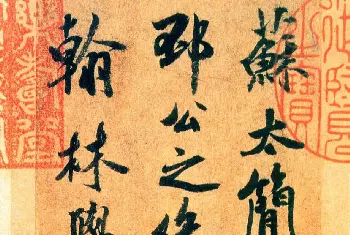 蘇太簡
邳公之後
翰林學